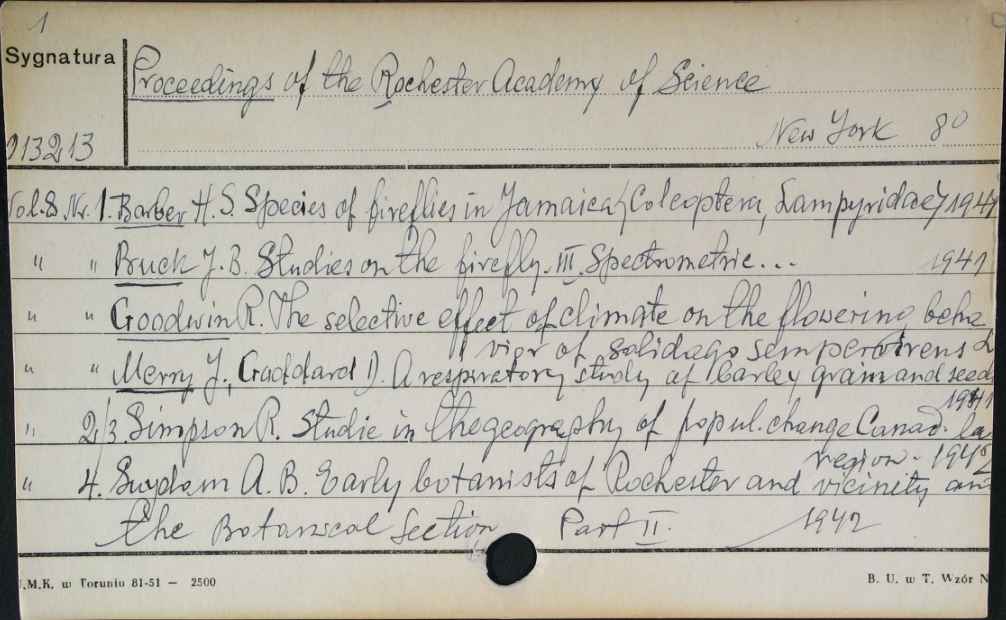 1
Sygnatura
Proceedings of the Rochester Academy of Science
New York 8°
213213
Vol. 8. Nr. 1. Barber H. S. Species of fireflies in Jamaica (Coleoptera, Lampyridae) 1941
" " Buck J. B. Studies on the firefly. III. Spectrometric... 1941
" " Goodwin R. The selective effect of climate on the flowering beha
vior of solidago sempervirens L
" " Merry J., Goddard D. A respiratory study of barley grain and seed
1941
" 2/3 Simpson R. Studie in the geography of popul. change Canad. la
region. 1942
" 4. Suydam A. B. Early botanists of Rochester and vicinity an
the Botanical Section Part II. 1942
U.M.K. w Toruniu 81-51 — 2500
B. U. w T. Wzór N